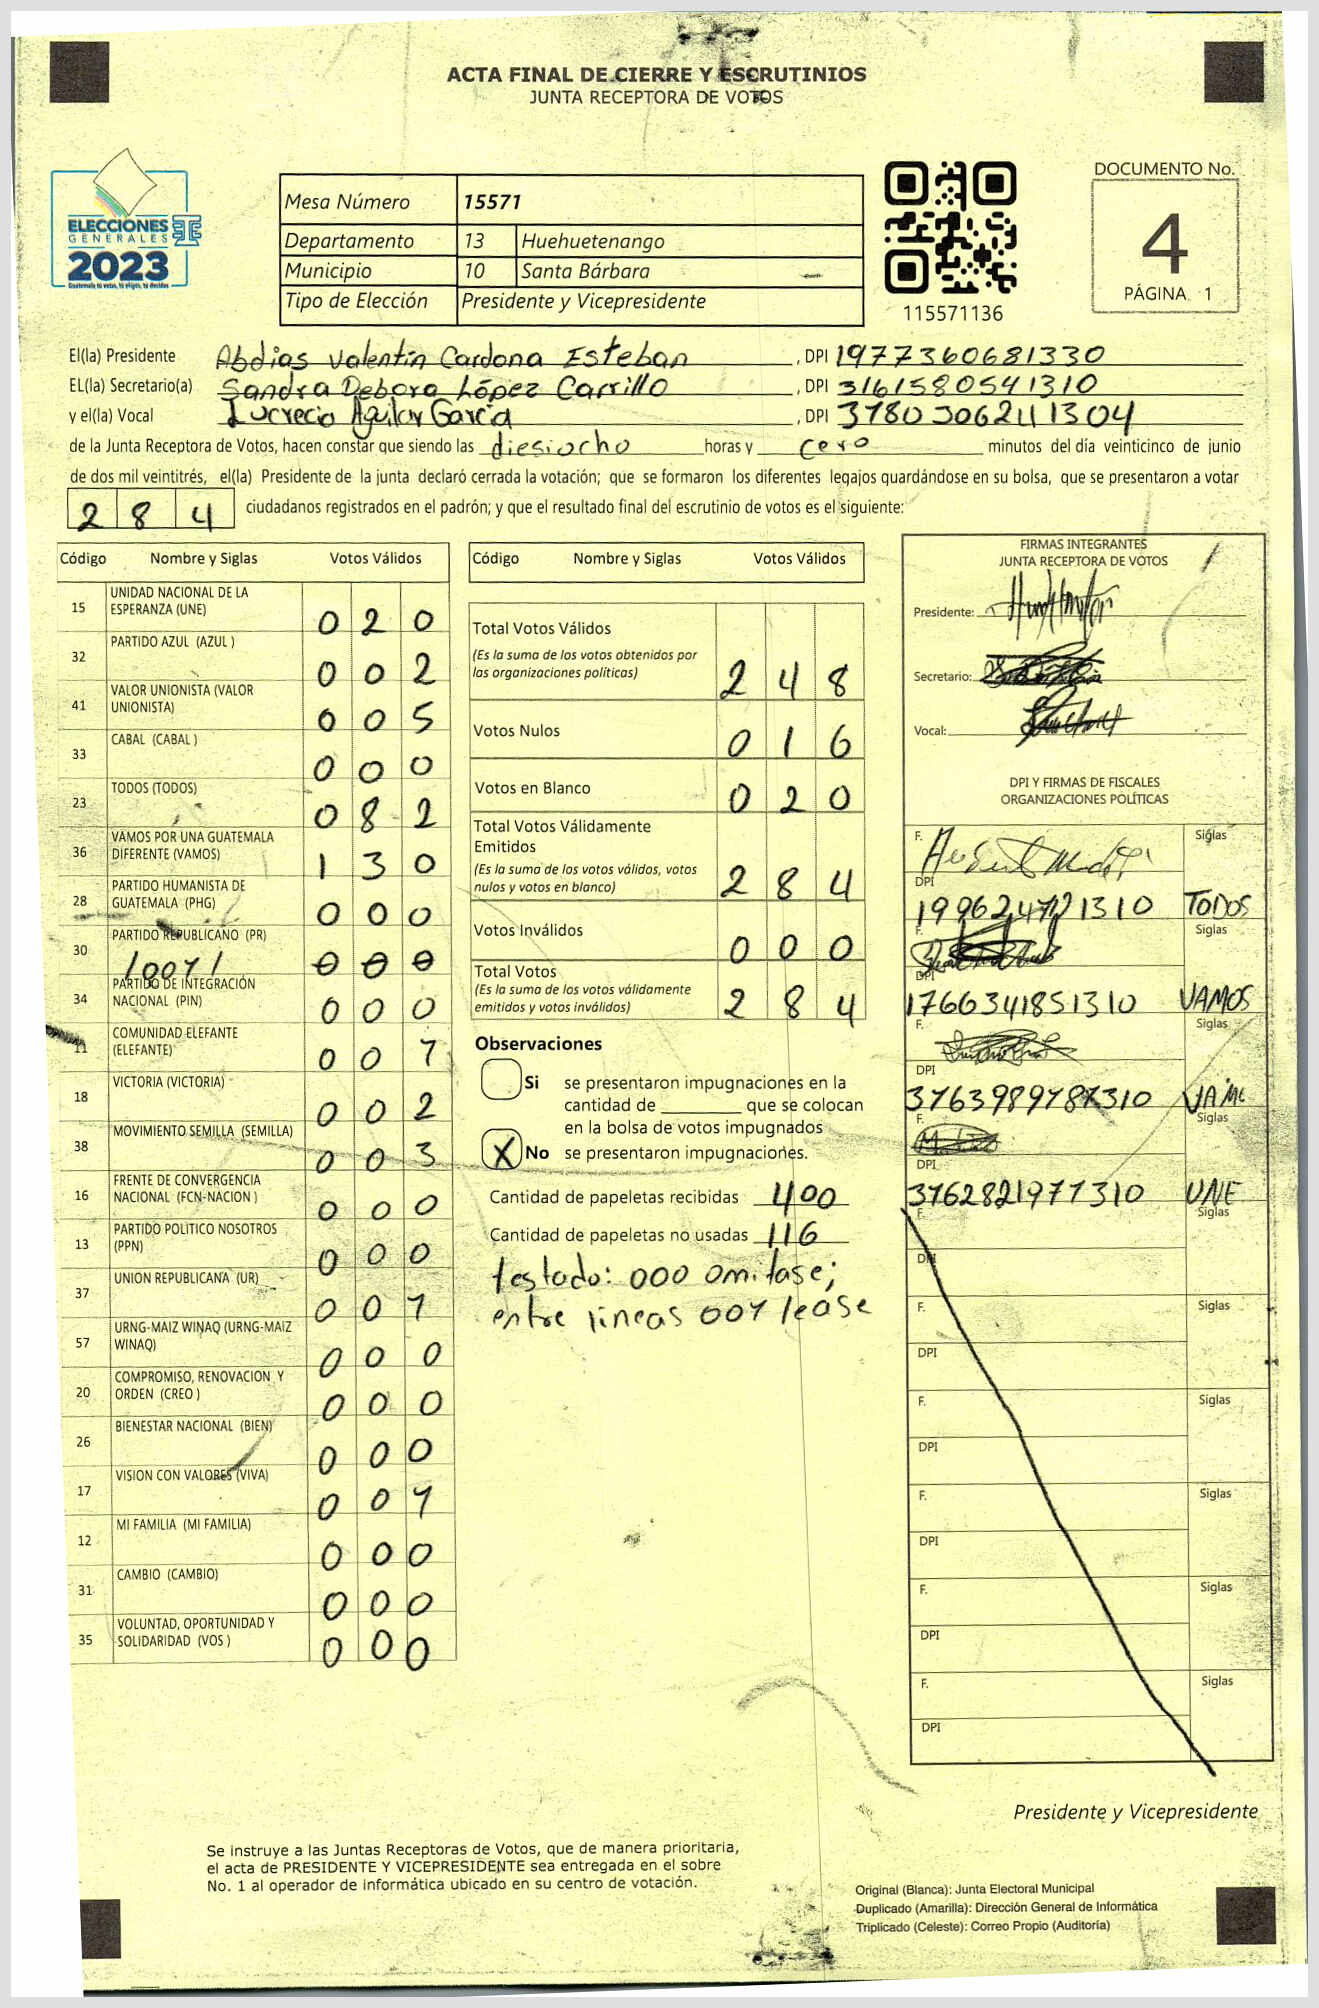 ACTA FINAL DE CIERRE Y ESCRUTINIOS
JUNTA RECEPTORA DE VOTOS
ELECCIONES
GENERALES
2023
Guatemala tu votas, tú eliges, tú decides
Mesa Número 15571
Departamento 13 Huehuetenango
Municipio 10 Santa Bárbara
Tipo de Elección Presidente y Vicepresidente
115571136
DOCUMENTO No.
4
PÁGINA 1
El(la) Presidente Abdias Valentín Cardona Esteban, DPI 1977360681330
EL(la) Secretario(a) Sandra Debora López Carrillo, DPI 3161580541310
y el(la) Vocal Lucrecia Aguilar García, DPI
de la Junta Receptora de Votos, hacen constar que siendo las diesiocho horas y cero minutos del día veinticinco de junio
de dos mil veintitrés, el(la) Presidente de la junta declaró cerrada la votación; que se formaron los diferentes legajos guardándose en su bolsa, que se presentaron a votar
284 ciudadanos registrados en el padrón; y que el resultado final del escrutinio de votos es el siguiente:
Código Nombre y Siglas Votos Válidos
15 UNIDAD NACIONAL DE LA ESPERANZA (UNE) 020
32 PARTIDO AZUL (AZUL ) 002
41 VALOR UNIONISTA (VALOR UNIONISTA) 005
33 CABAL (CABAL ) 000
23 TODOS (TODOS) 082
36 VAMOS POR UNA GUATEMALA DIFERENTE (VAMOS) 130
28 PARTIDO HUMANISTA DE GUATEMALA (PHG) 000
30 PARTIDO REPUBLICANO (PR) 000
/001/
34 PARTIDO DE INTEGRACIÓN NACIONAL (PIN) 000
11 COMUNIDAD ELEFANTE (ELEFANTE) 001
18 VICTORIA (VICTORIA) 002
38 MOVIMIENTO SEMILLA (SEMILLA) 003
16 FRENTE DE CONVERGENCIA NACIONAL (FCN-NACION ) 000
13 PARTIDO POLITICO NOSOTROS (PPN) 000
37 UNION REPUBLICANA (UR) 001
57 URNG-MAIZ WINAQ (URNG-MAIZ WINAQ) 000
20 COMPROMISO, RENOVACION Y ORDEN (CREO ) 000
26 BIENESTAR NACIONAL (BIEN) 000
17 VISION CON VALORES (VIVA) 001
12 MI FAMILIA (MI FAMILIA) 000
31 CAMBIO (CAMBIO) 000
35 VOLUNTAD, OPORTUNIDAD Y SOLIDARIDAD (VOS ) 000
Código Nombre y Siglas Votos Válidos
Total Votos Válidos 248
(Es la suma de los votos obtenidos por
las organizaciones políticas)
Votos Nulos 016
Votos en Blanco 020
Total Votos Válidamente
Emitidos 284
(Es la suma de los votos válidos, votos
nulos y votos en blanco)
Votos Inválidos 000
Total Votos 284
(Es la suma de los votos válidamente
emitidos y votos inválidos)
Observaciones
Si se presentaron impugnaciones en la
cantidad de ________ que se colocan
en la bolsa de votos impugnados
X No se presentaron impugnaciones.
Cantidad de papeletas recibidas 400
Cantidad de papeletas no usadas 116
testado: 000 omitase;
entre lineas 001 lease
FIRMAS INTEGRANTES
JUNTA RECEPTORA DE VOTOS
Presidente:
Secretario:
Vocal:
DPI Y FIRMAS DE FISCALES
ORGANIZACIONES POLÍTICAS
F. Siglas
DPI TODOS
F. Siglas
DPI 1766341851310 VAMOS
F. Siglas
DPI
F. Siglas
DPI 3762821971310 UNE
F. Siglas
DPI
F. Siglas
DPI
F. Siglas
DPI
F. Siglas
DPI
F. Siglas
DPI
F. Siglas
DPI
Presidente y Vicepresidente
Se instruye a las Juntas Receptoras de Votos, que de manera prioritaria,
el acta de PRESIDENTE Y VICEPRESIDENTE sea entregada en el sobre
No. 1 al operador de informática ubicado en su centro de votación.
Original (Blanca): Junta Electoral Municipal
Duplicado (Amarilla): Dirección General de Informática
Triplicado (Celeste): Correo Propio (Auditoría)